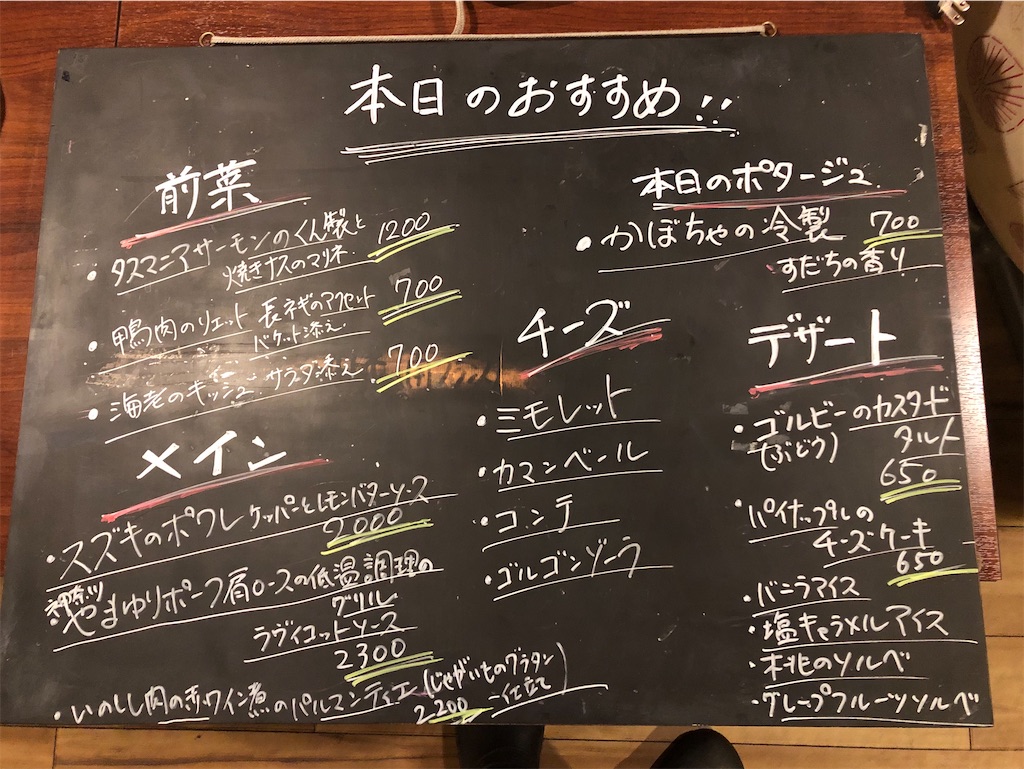 本日のおすすめ!!
前菜
・タスマニアサーモンのくん製と
焼きナスのマリネ 1200
・鴨肉のリエット 長ネギのアクセント
バケット添え 700
・海老のキッシュ サラダ添え 700
メイン
・スズキのポワレ ケッパーとレモンバターソース
2000
・神奈川やまゆりポーク肩ロースの低温調理の
グリル
ラヴィゴットソース
2300
・いのしし肉の赤ワイン煮のパルマンティエ(じゃがいものグラタン
仕立て)
2200
本日のポタージュ
・かぼちゃの冷製 700
すだちの香り
チーズ
・ミモレット
・カマンベール
・コンテ
・ゴルゴンゾーラ
デザート
・ゴルビーのカスタード
(ぶどう) タルト
650
・パイナップルの
チーズケーキ
650
・バニラアイス
・塩キャラメルアイス
・木桃のソルベ
・グレープフルーツソルベ